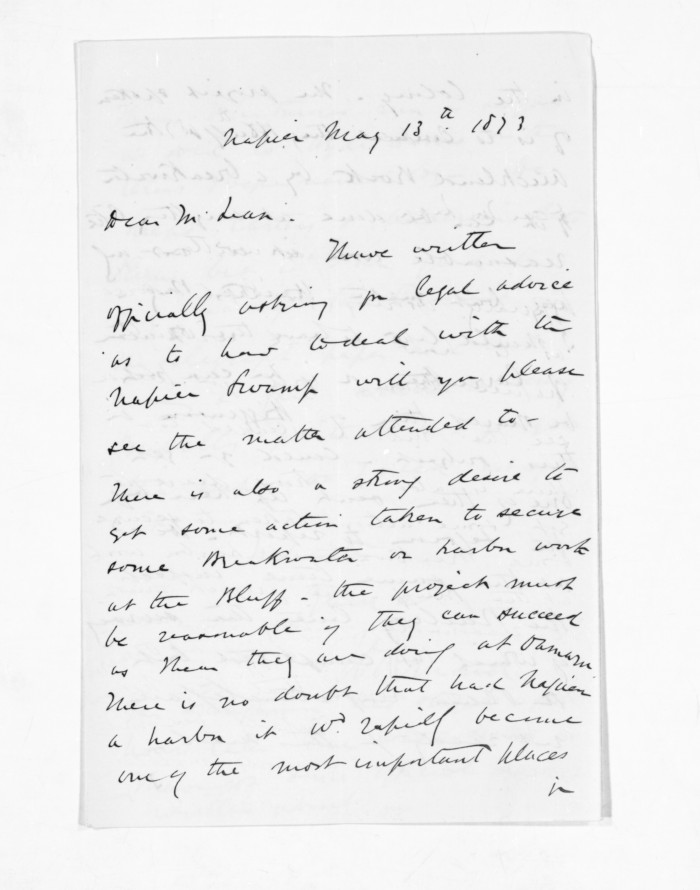 Napier May 13th 1873
Dear McLean.
I have written
officially asking for legal advice
as to how to deal with the
Napier Swamp will you please
see the matter attended to -
There is also a strong desire to
get some action taken to secure
some Breakwater or harbor work
at the Bluff - the project must
be reasonable if they can succeed
as there they are doing at Oamaru
There is no doubt that had Napier
a harbor it wd. rapidly become
one of the most important places
in